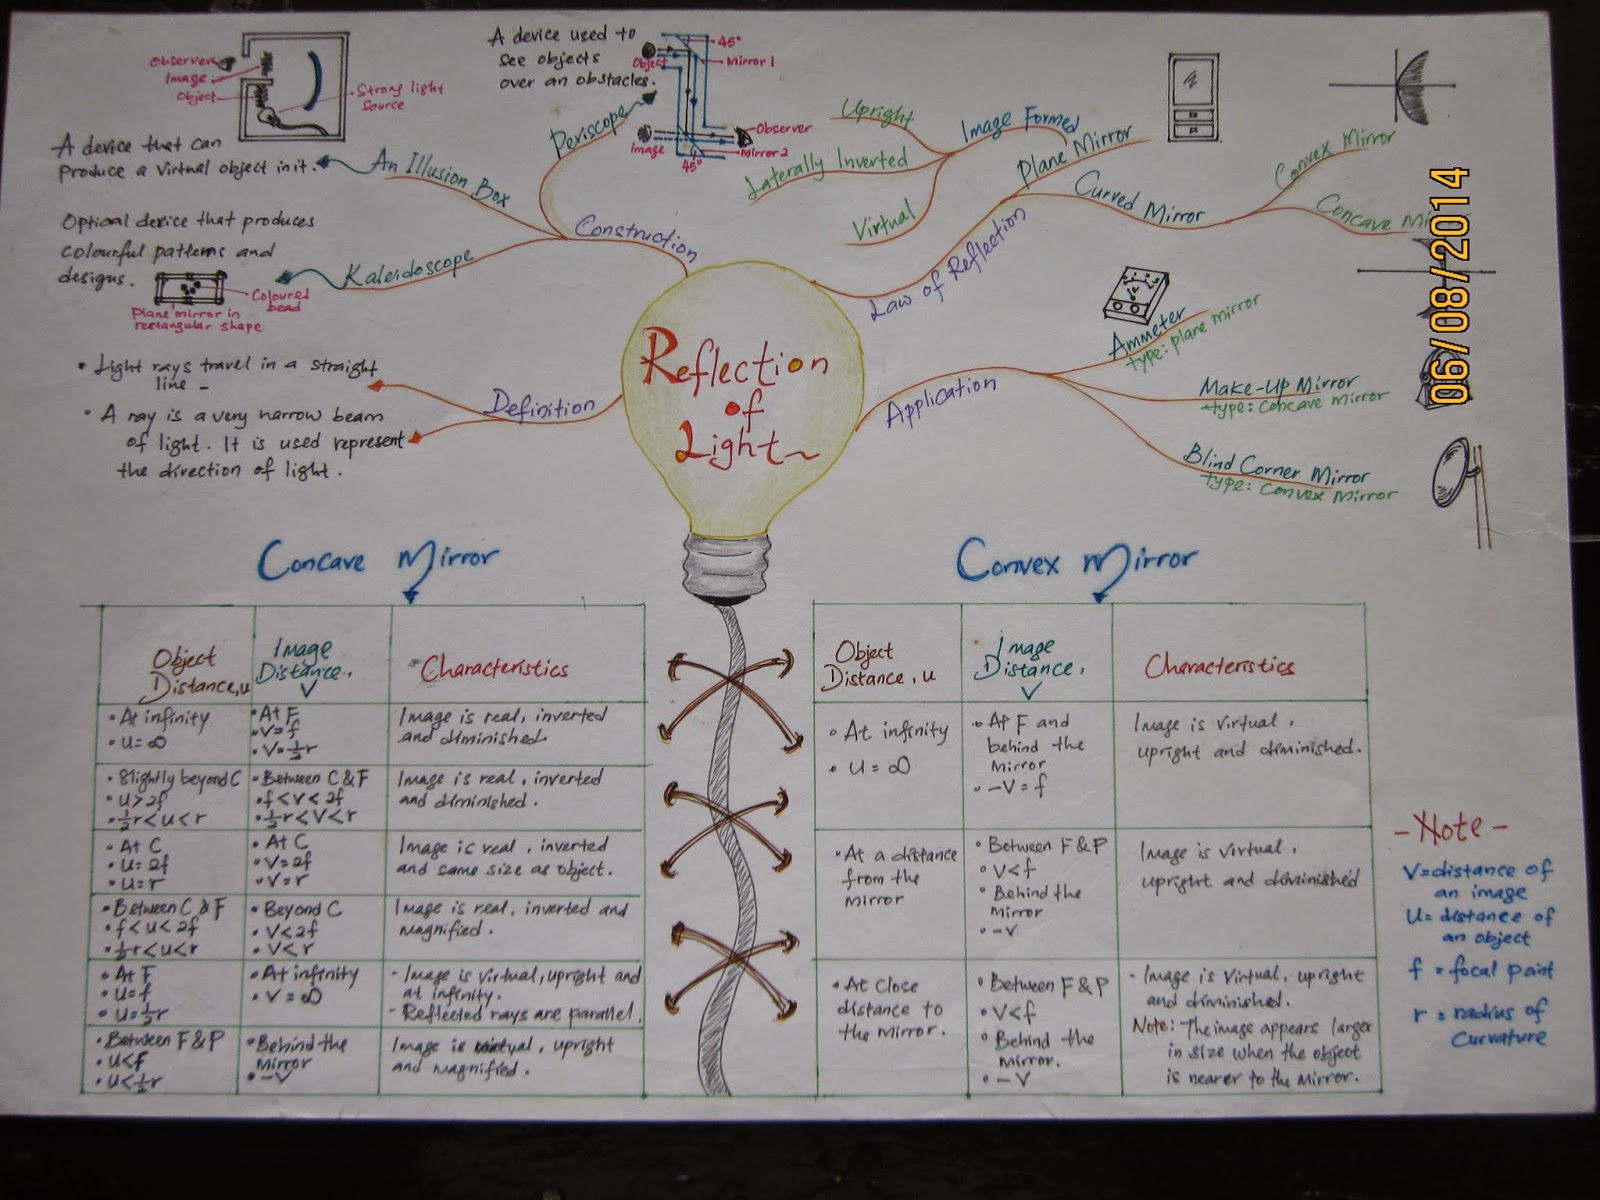 Observer
Image
Object
Strong light
Source
A device that can
produce a virtual object in it.
An Illusion Box
A device used to
see objects
over an obstacles.
Periscope
Object
45°
Mirror 1
Observer
Image
Mirror 2
45°
Construction
Optical device that produces
colourful patterns and
designs.
Kaleidoscope
Coloured
bead
Plane mirror in
rectangular shape
• Light rays travel in a straight
line -
• A ray is a very narrow beam
of light. It is used represent
the direction of light.
Definition
Reflection
of
Light
Upright
Laterally Inverted
Virtual
Image Formed
Plane Mirror
Law of Reflection
Curved Mirror
Convex Mirror
Concave Mi
06/08/2014
Application
Ammeter
type: plane mirror
Make-Up Mirror
type: concave mirror
Blind Corner Mirror
type: convex mirror
Concave Mirror
Object
Distance, u
Image
Distance,
V
Characteristics
• At infinity
• u = ∞
• At F
• V = f
• V = ½r
Image is real, inverted
and diminished.
• Slightly beyond C
• u > 2f
• ½r < u < r
• Between C & F
• f < v < 2f
• ½r < V < r
Image is real, inverted
and diminished.
• At C
• u = 2f
• u = r
• At C
• V = 2f
• V = r
Image is real, inverted
and same size as object.
• Between C & F
• f < u < 2f
• ½r < u < r
• Beyond C
• V < 2f
• V < r
Image is real, inverted and
magnified.
• At F
• u = f
• u = ½r
• At infinity
• V = ∞
- Image is virtual, upright and
at infinity.
- Reflected rays are parallel.
• Between F & P
• u < f
• u < ½r
• Behind the
Mirror
• - V
Image is virtual, upright
and magnified.
Convex Mirror
Object
Distance, u
Image
Distance,
V
Characteristics
• At infinity
• u = ∞
• At F and
behind the
Mirror
• - V = f
Image is virtual,
upright and diminished.
• At a distance
from the
mirror
• Between F & P
• V < f
• Behind the
Mirror
• - V
Image is virtual,
upright and diminished
• At close
distance to
the mirror.
• Between F & P
• V < f
• Behind the
mirror.
• - V
- Image is virtual, upright
and diminished.
Note: The image appears larger
in size when the object
is nearer to the mirror.
- Note -
V = distance of
an image
u = distance of
an object
f = focal point
r = radius of
curvature